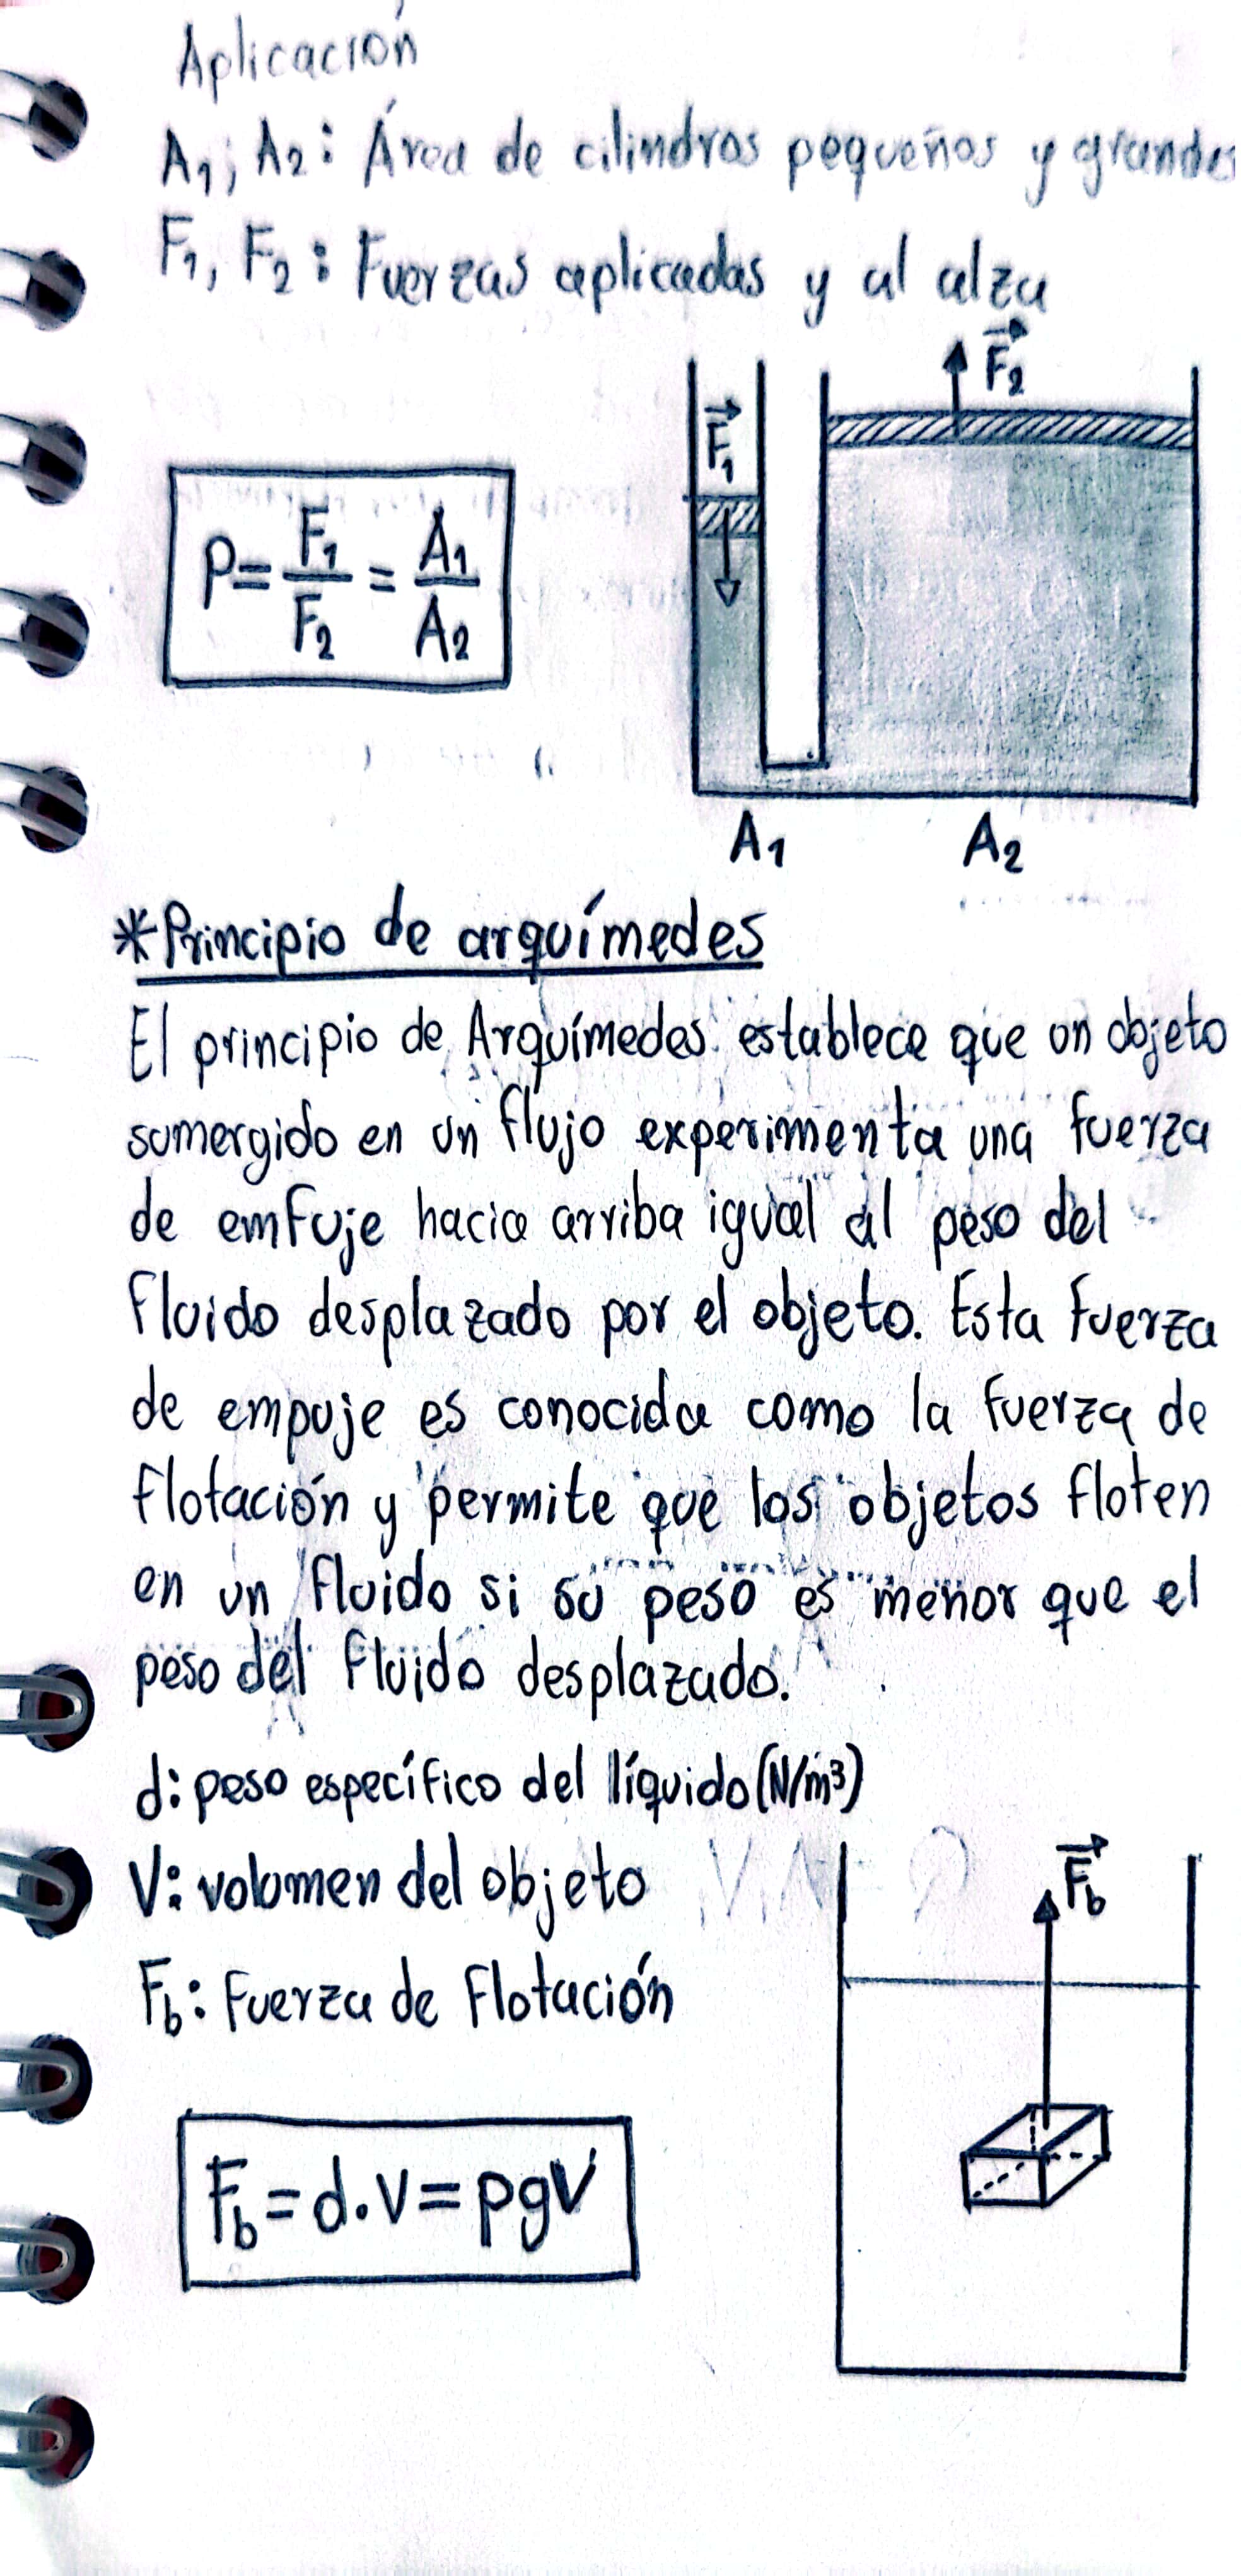 Aplicación
A₁; A₂: Área de cilindros pequeños y grandes
F₁, F₂: Fuerzas aplicadas y al alza
F₂
F₁
P = F₁/F₂ = A₁/A₂
A₁ A₂
*Principio de arquímedes
El principio de Arquímedes establece que un objeto
sumergido en un flujo experimenta una fuerza
de emfuje hacia arriba igual al peso del
fluido desplazado por el objeto. Esta fuerza
de empuje es conocida como la fuerza de
flotación y permite que los objetos floten
en un fluido si su peso es menor que el
peso del fluido desplazado.
d: peso específico del líquido (N/m³)
V: volumen del objeto
F_b
F_b: Fuerza de Flotación
F_b = d.V = pgV